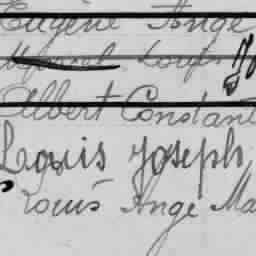 Eugène Ange
Marcel Louis
Albert Constant
Louis Joseph
Louis Ange Ma